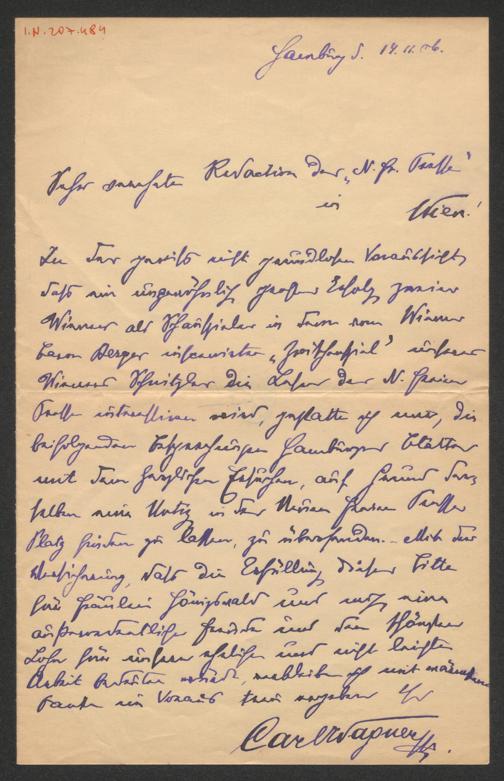 I.N. 207.484
Hamburg d. 14.11.06.
Sehr verehrte Redaction der „N. Fr. Presse"
in Wien!
In der gewiss nicht grundlosen Voraussicht,
daß ein ungewöhnlich großer Erfolg zweier
Wiener als Schauspieler in dem vom Wiener
Baron Berger inscenirten „Zwischenspiel" unseres
Wieners Schnitzler die Leser der N. Freien
Presse interessieren wird, gestatte ich mir, die
beifolgenden Besprechungen Hamburger Blätter
mit dem herzlichen Ersuchen, auf Grund der-
selben eine Notiz in der Neuen Freien Presse
Platz finden zu lassen, zu übersenden. Mit der
Versicherung, daß die Erfüllung dieser Bitte
für Fräulein Königswald und mich eine
außerordentliche Freude und den schönsten
Lohn für unsere ehrliche und nicht leichte
Arbeit bedeuten würde, verbleibe ich mit wärmstem
Danke im Voraus Ihr ergebener
Carl Wagner